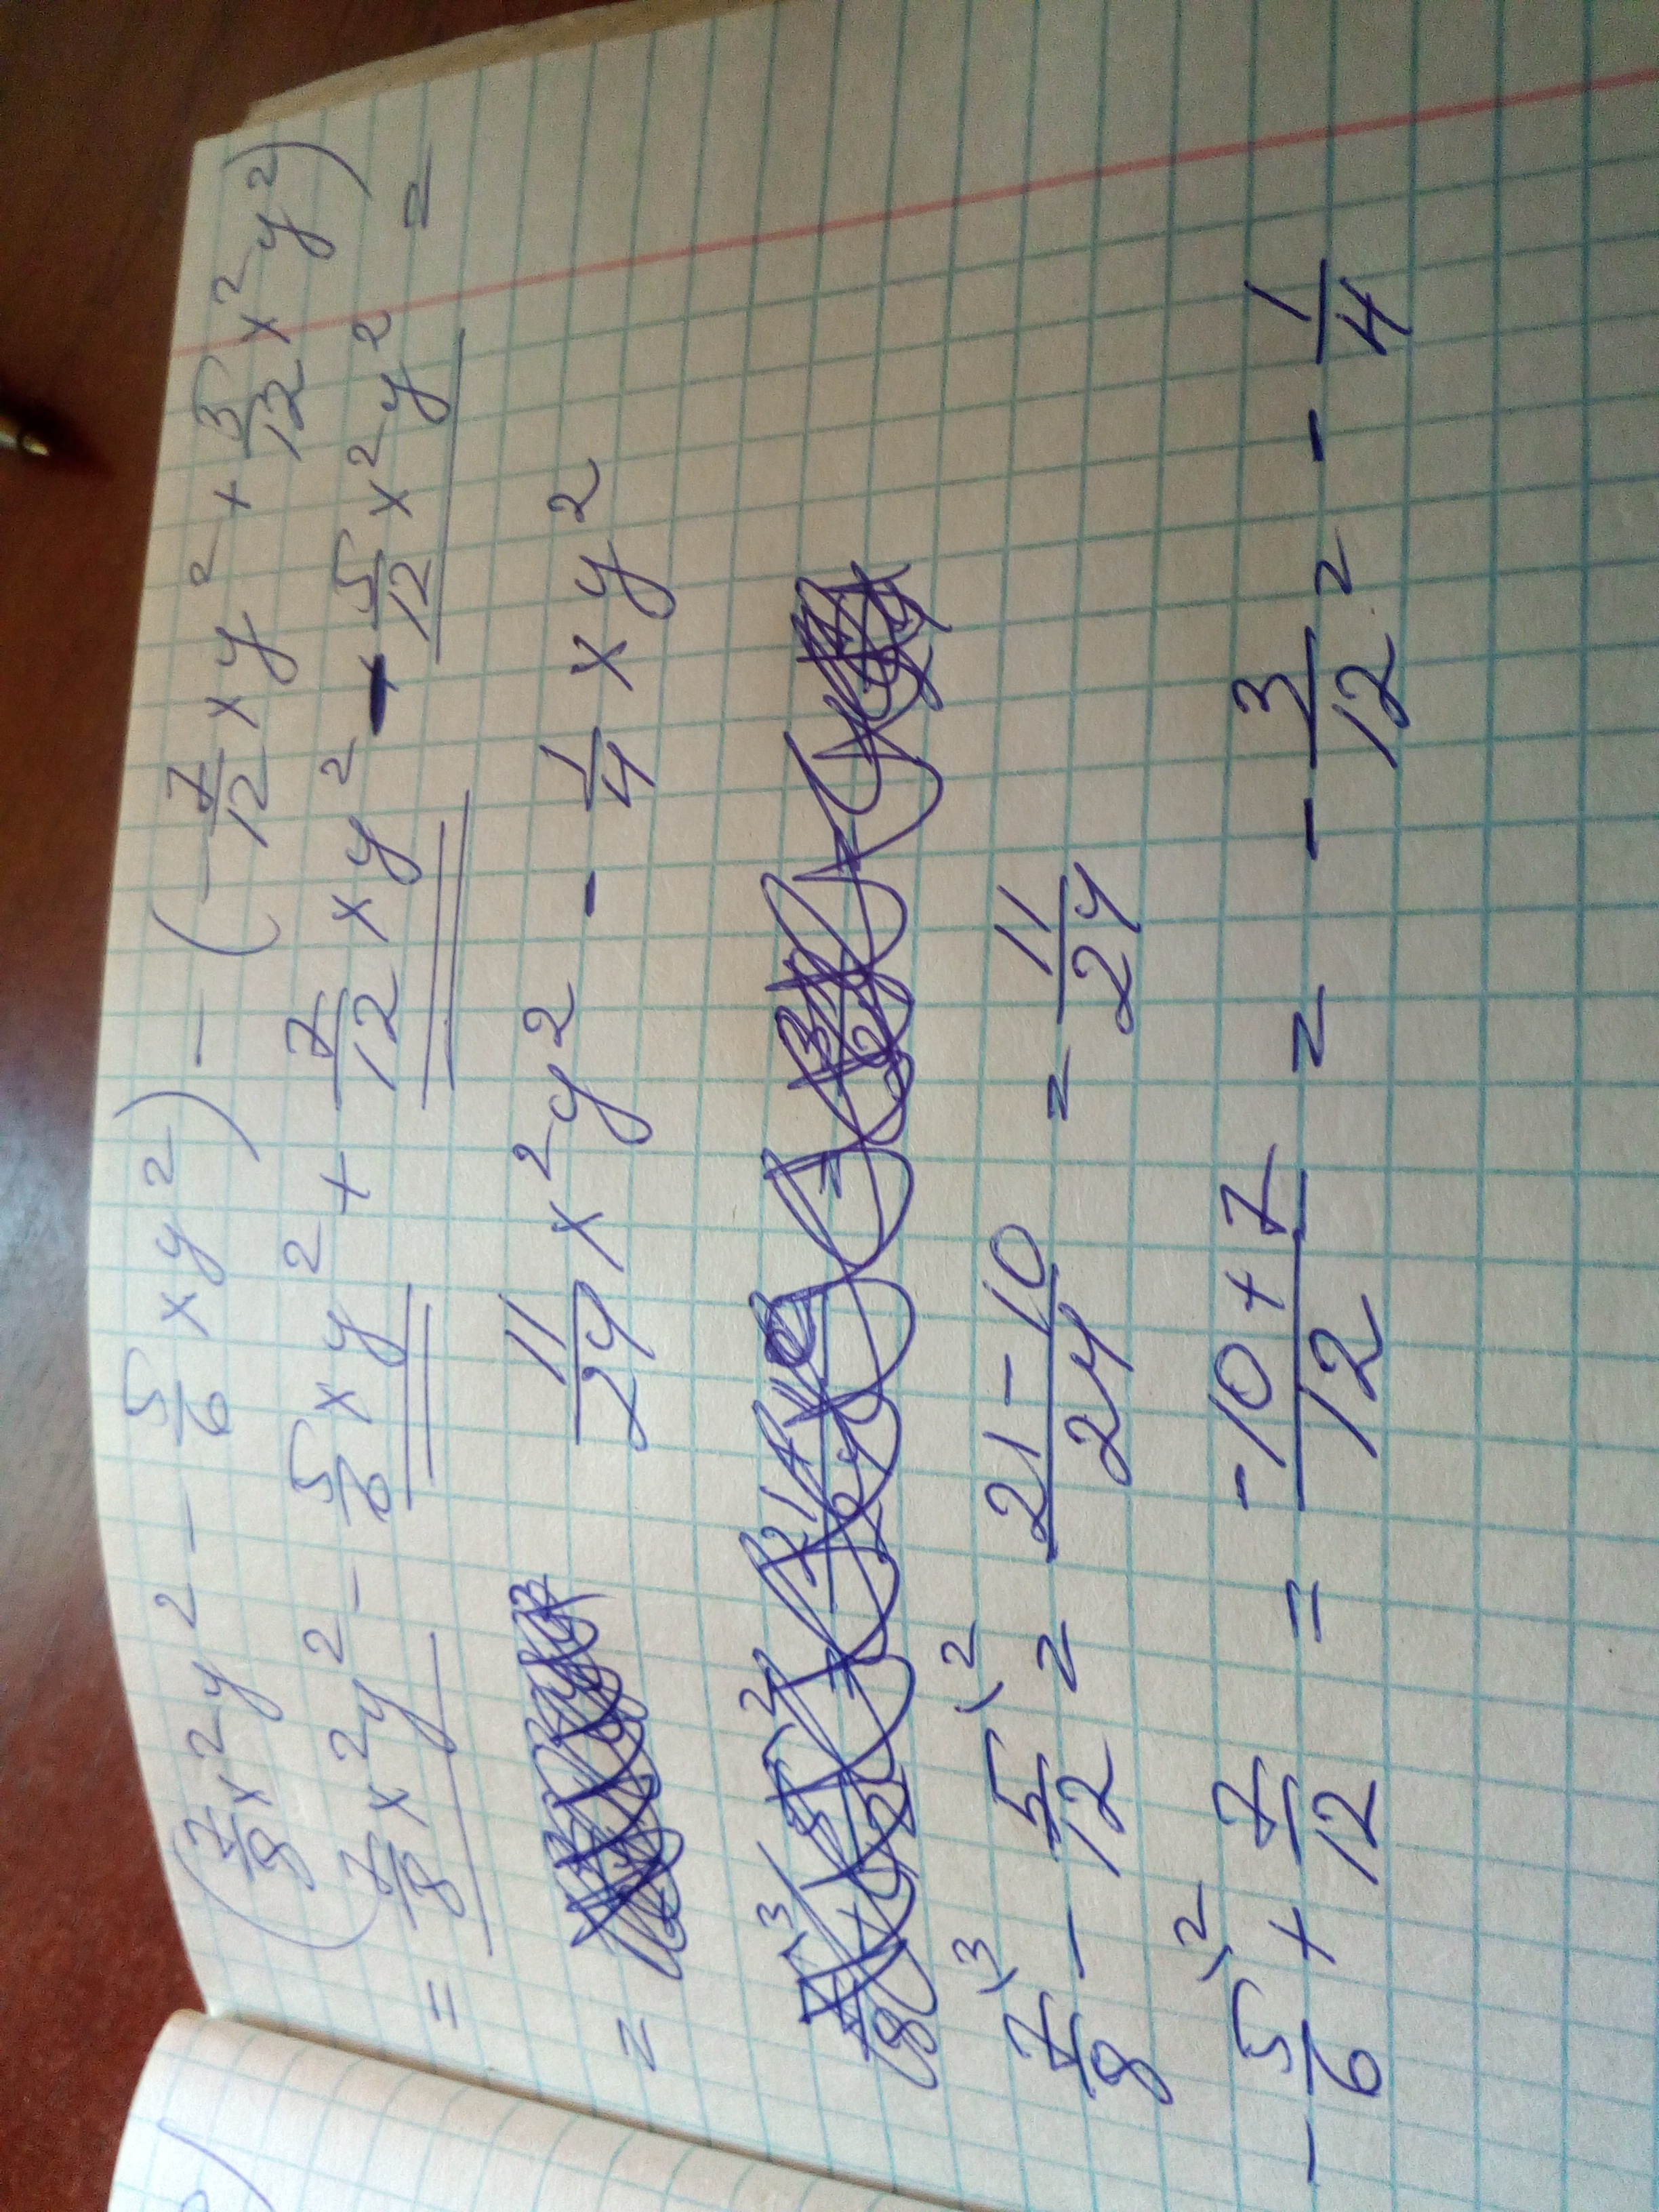 (7/8 x²y² - 5/6 xy²) - (-7/12 xy² + 5/12 x²y²)
= 7/8 x²y² - 5/6 xy² + 7/12 xy² - 5/12 x²y² =
= 11/24 x²y² - 1/4 xy²
7/8 \3 - 5/12 \2 = 21-10/24 = 11/24
-5/6 \2 + 7/12 = -10+7/12 = -3/12 = -1/4